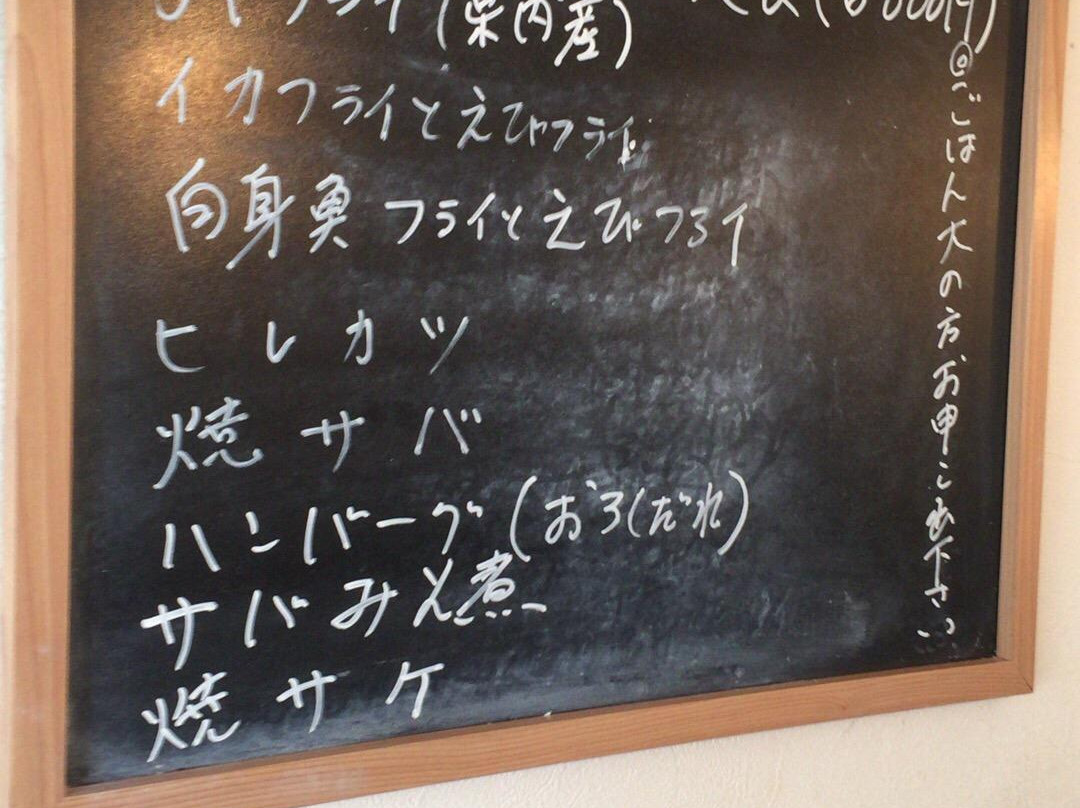 フライ(県内産)
イカフライとえびフライ
白身魚フライとえびフライ
ヒレカツ
焼サバ
ハンバーグ(おろしだれ)
サバみそ煮
焼サケ
◎ごはん大の方お申こみ下さい